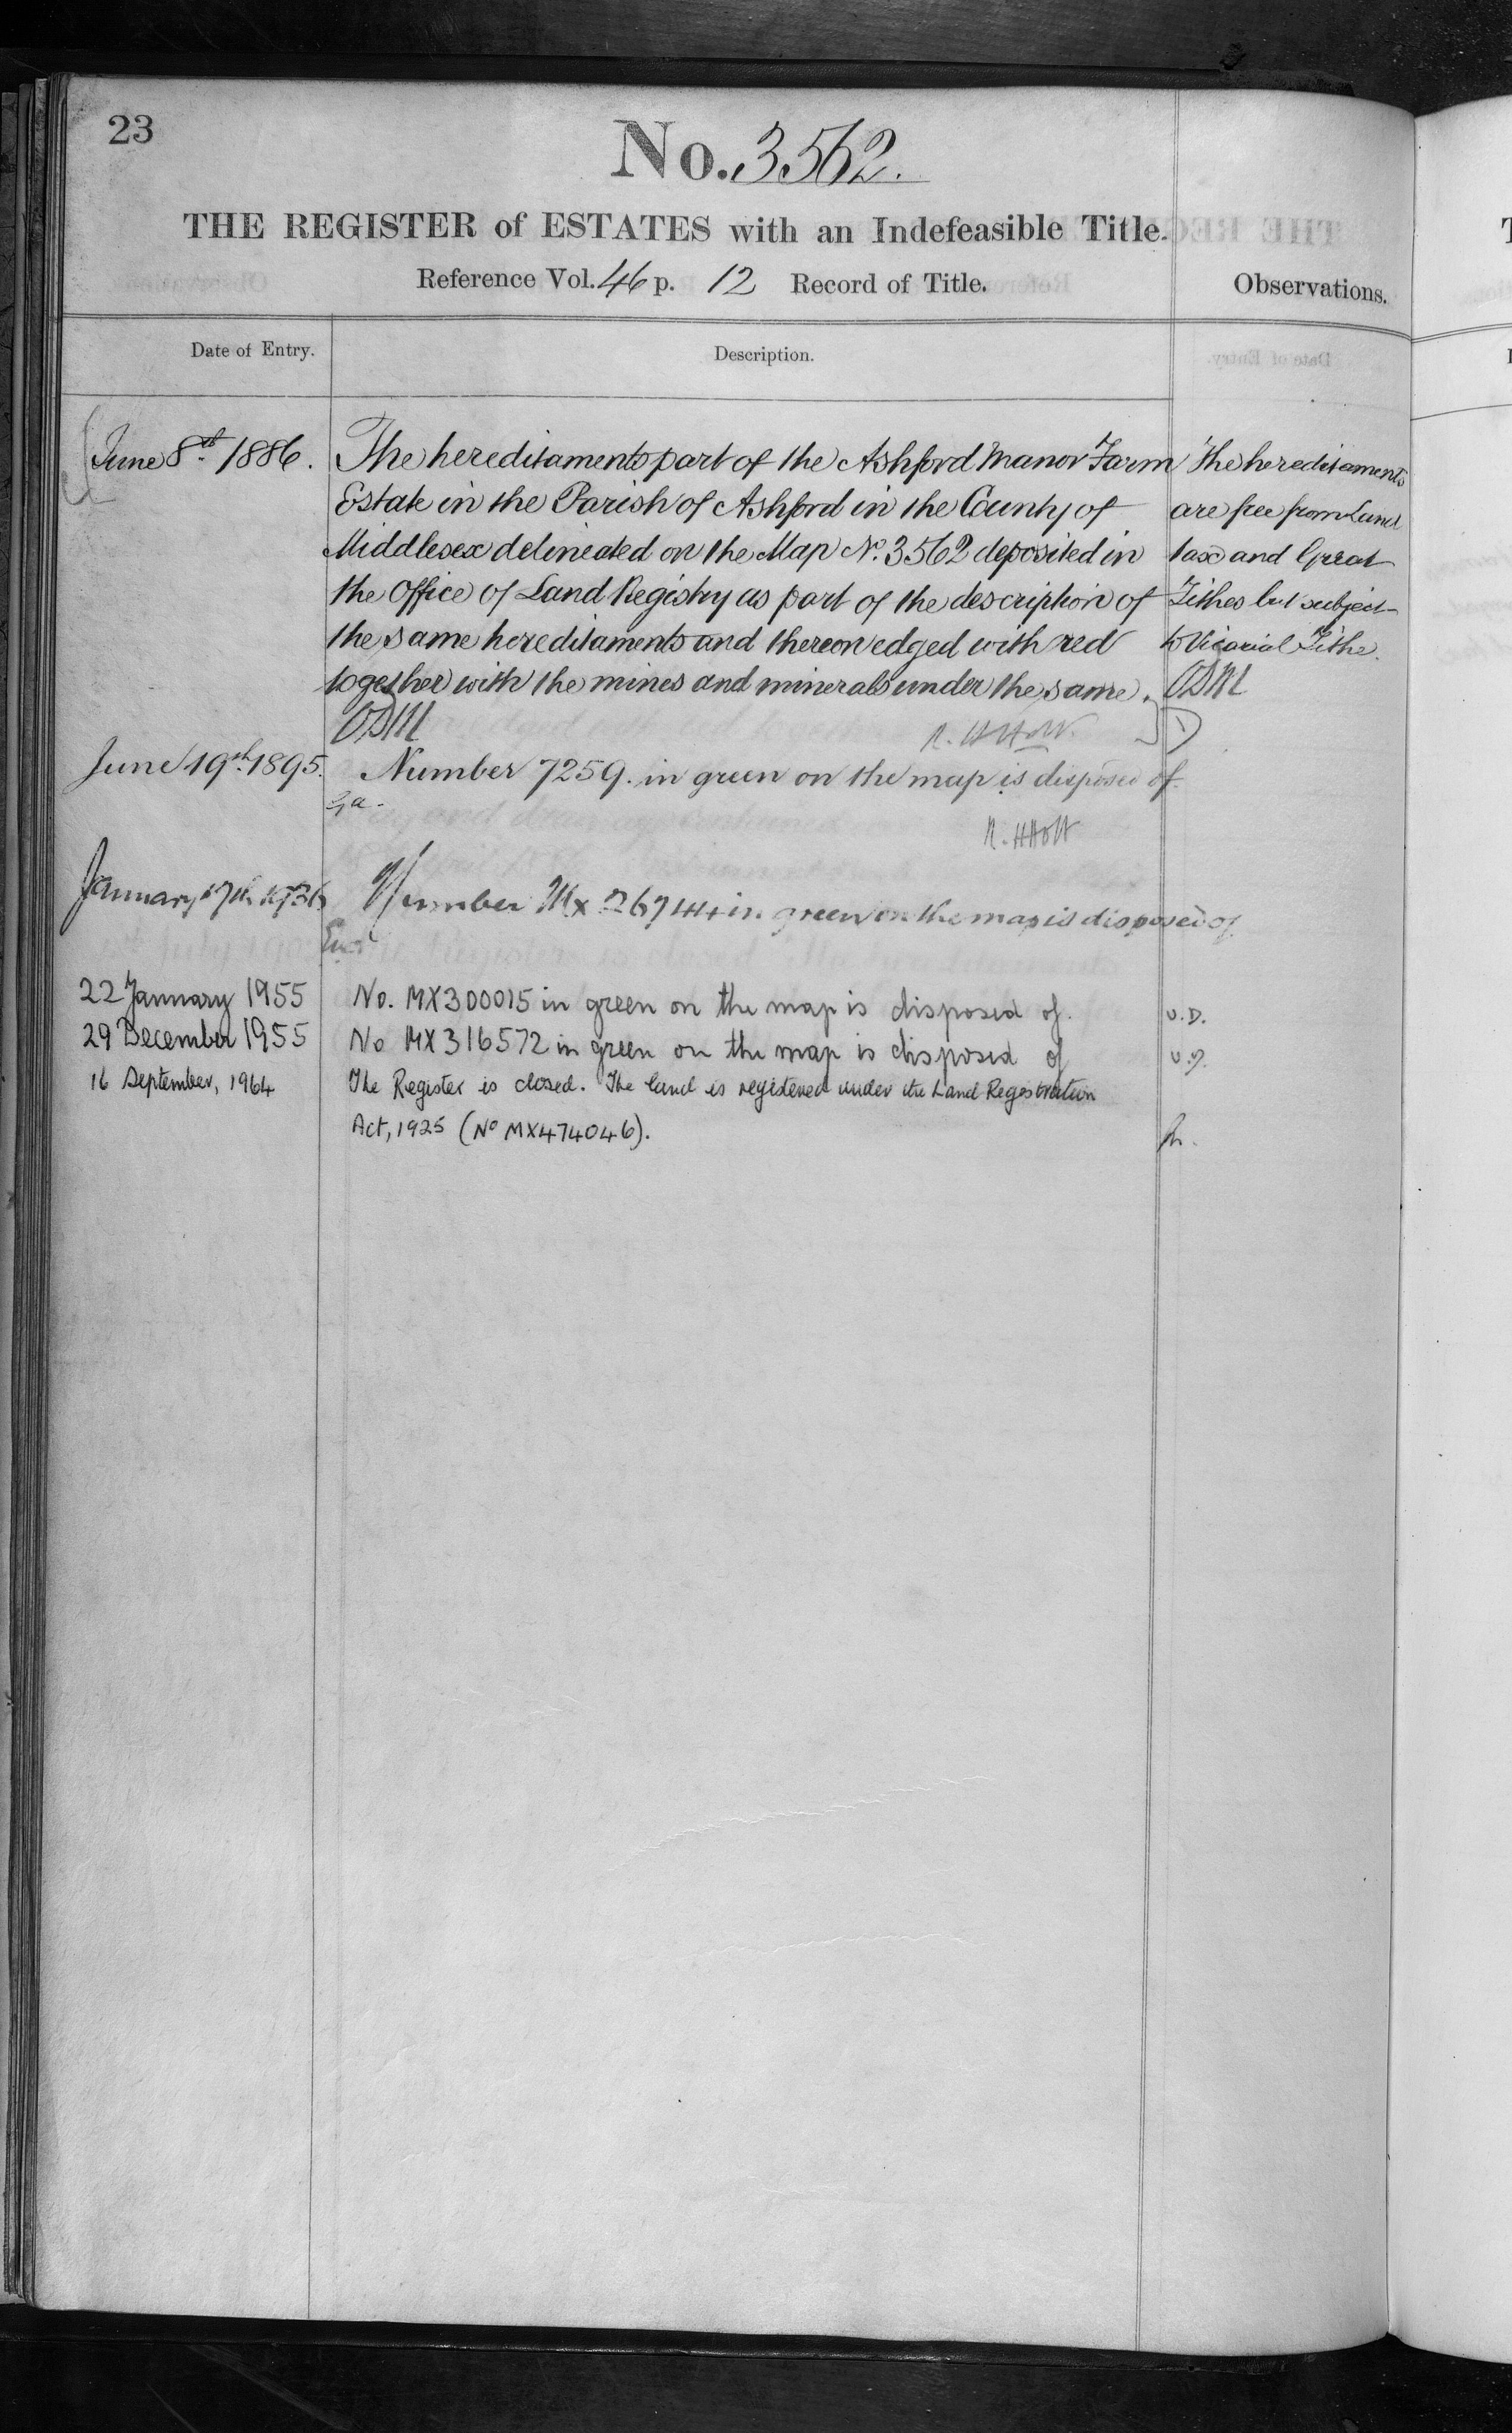 23
No. 3562.
THE REGISTER of ESTATES with an Indefeasible Title.
Reference Vol. 46 p. 12 Record of Title.
Observations.
Date of Entry.
Description.
June 8th 1886.
The hereditaments part of the Ashford Manor Farm
Estate in the Parish of Ashford in the County of
Middlesex delineated on the Map No. 3562 deposited in
the Office of Land Registry as part of the description of
the same hereditaments and thereon edged with red
together with the mines and minerals under the same.
The hereditaments
are free from Land
tax and Great
Tithes but subject
to Vicarial Tithe.
June 19th 1895.
Number 7259. in green on the map is disposed of.
January 17th 1936
Number Mx 26744 in green on the map is disposed of
22 January 1955
No. MX300015 in green on the map is disposed of.
V.D.
29 December 1955
No MX316572 in green on the map is disposed of
16 September, 1964
The Register is closed. The land is registered under the Land Registration
Act, 1925 (No MX474046).